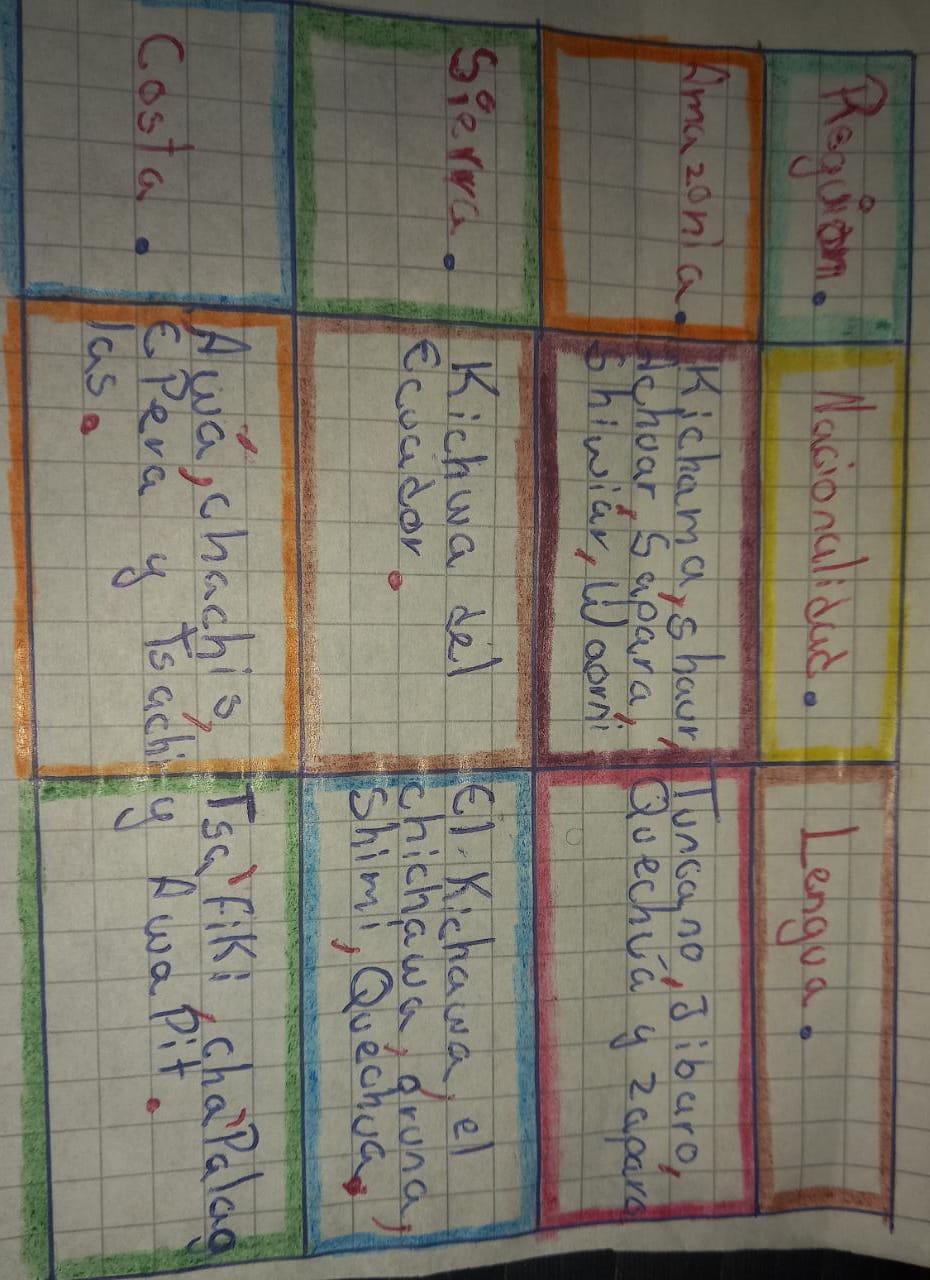 Región. Nacionalidad. Lengua.
Amazonia.
Kichama, shaur,
Achuar Sapara,
Shiwiar, Waorni
Tuncayno, Jibaro,
Quechua y zapara
Sierra.
Kichwa del
Ecuador.
El Kichawa, el
chichawa, gruna,
Shimi, Quechua.
Costa.
Awá, chachis,
EPera y Tsachi
las.
Tsa'fiKi, cha'Palaa
y AwaPit.